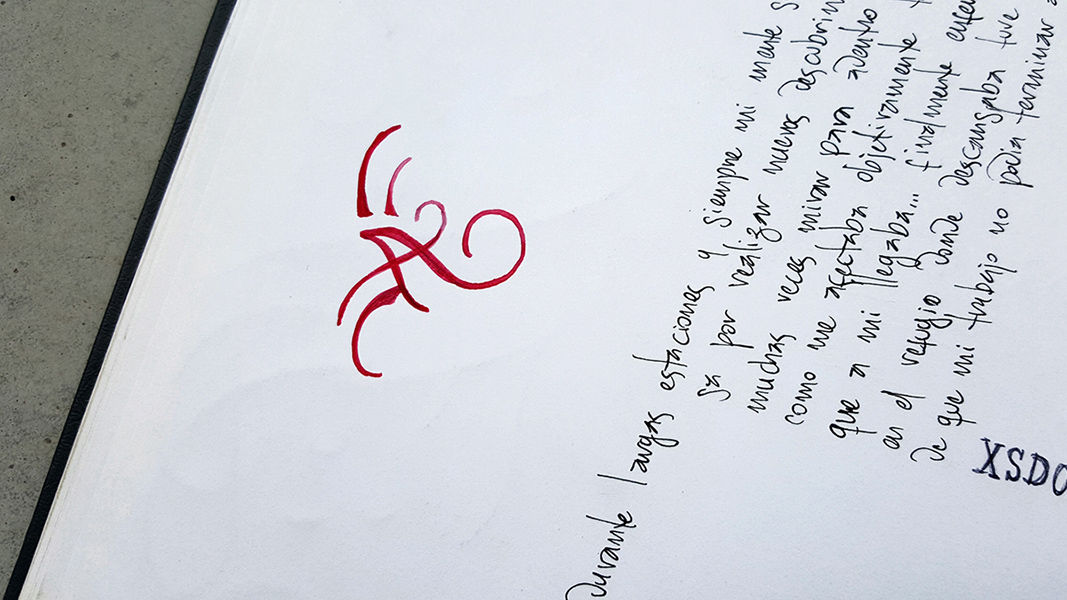 Durante largas estaciones y siempre mi mente
sa por realizar nuevos descubrim
muchas veces mirar para adentro
como me afectaba objetivamente
que a mi llegaba... finalmente
en el refugio donde descansaba tuve
de que mi trabajo no podia terminar
XSDO